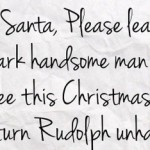 Santa, Please lea
ark handsome man
ee this Christmas
turn Rudolph unha